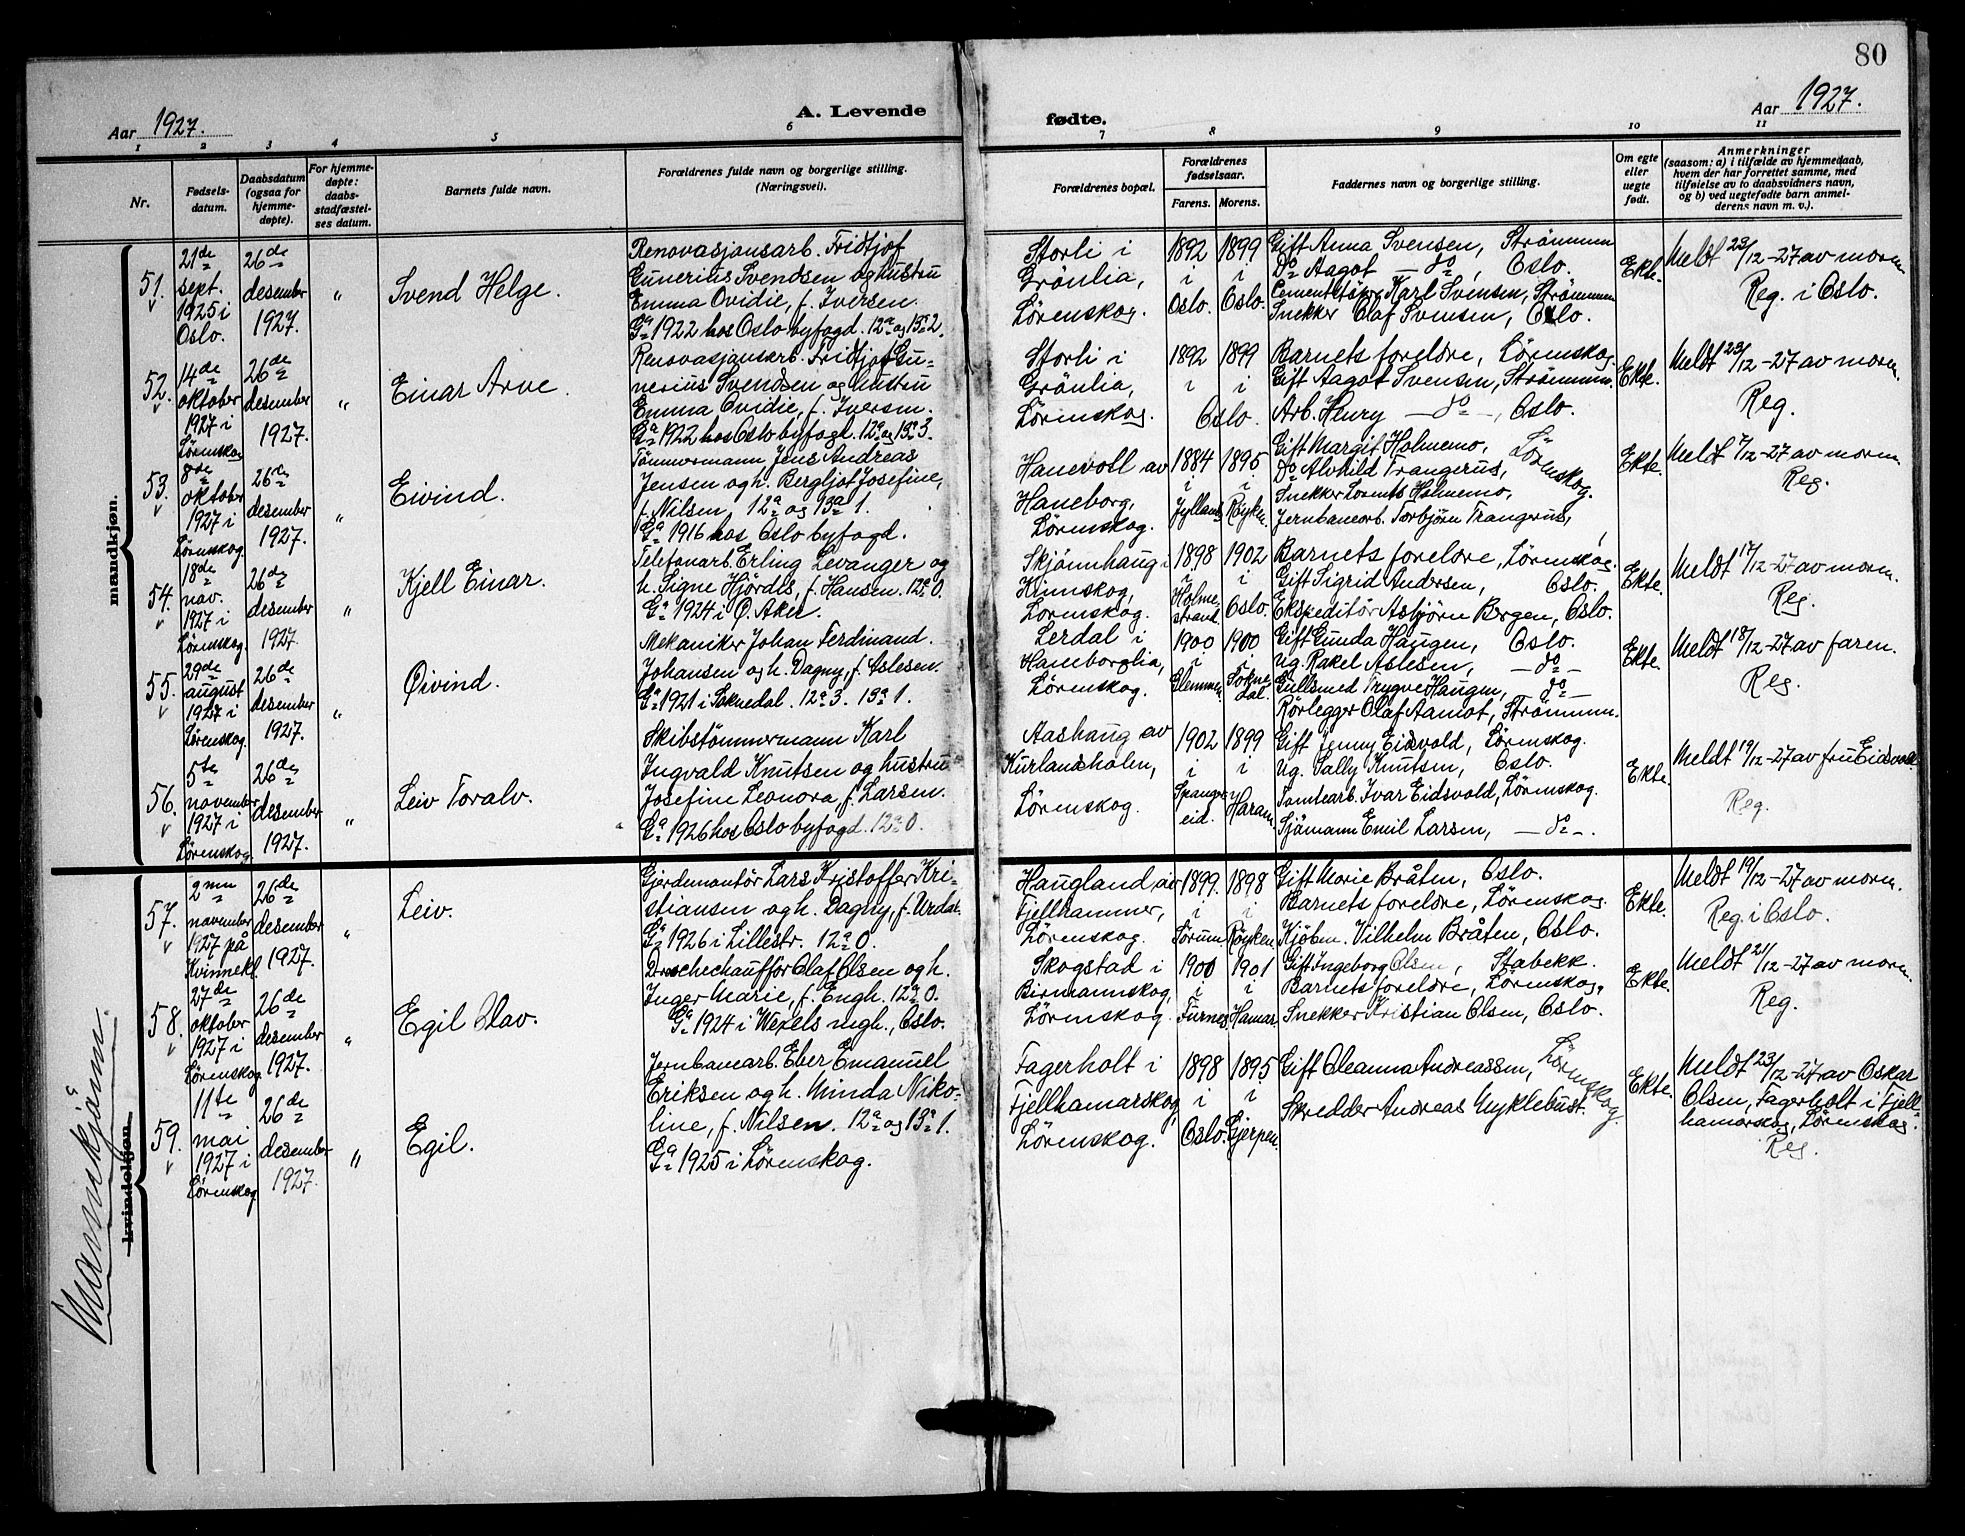 80
Aar 1927.
A. Levende
fødte.
Aar 1927.
1 2 3 4 5 6 7 8 9 10 11
Nr.
Fødsels-
datum.
Daabsdatum
(ogsaa for
hjemme-
døpte).
For hjemme-
døpte:
daabs-
stadfæstel-
ses datum.
Barnets fulde navn.
Forældrenes fulde navn og borgerlige stilling.
(Næringsvei).
Forældrenes bopæl.
Forældrenes
fødselsaar.
Farens. Morens.
Faddernes navn og borgerlige stilling.
Om egte
eller
uegte
født.
Anmerkninger
(saasom: a) i tilfælde av hjemmedaab,
hvem der har forrettet samme, med
tilføielse av to daabsvidners navn,
og b) ved uegtefødte barn anmel-
derens navn m. v.).
mandkjøn.
51.
21de
sept.
1925 i
Oslo.
26de
desember
1927.
"
Svend Helge.
Renovasjonsarb. Fridtjof
Gunerius Svendsen og hustru
Emma Ovidie, f. Iversen.
Ga 1922 hos Oslo byfogd. 12a og 13a 2.
Storli i
Grönlia,
Lörenskog.
1892
i
Oslo.
1899
i
Oslo.
Gift Anna Svensen, Strömmen
Do Aagot — do, Oslo.
Cementstöper Karl Svensen, Strömmen
Snekker Olaf Svensen, Oslo.
Ekte.
Meldt 23/12-27 av moren
Reg. i Oslo.
52.
14de
oktober
1927 i
Lörenskog
26de
desember
1927.
"
Einar Arve
Renovasjonsarb. Fridtjof Gu-
nerius Svendsen og hustru
Emma Ovidie, f. Iversen.
Ga 1922 hos Oslo byfogd. 12a og 13a 3.
Storli i
Grönlia,
Lörenskog.
1892 1899
i i
Oslo.
Barnets foreldre, Lörenskog.
Gift Aagot Svensen, Strömmen.
Arb. Henry — do —, Oslo.
Ekte.
Meldt 23/12-27 av moren.
Reg.
53.
8de
oktober
1927 i
Lörenskog.
26de
desember
1927.
"
Eivind.
Tömmermann Jens Andreas
Jensen og h. Bergljot Josefine,
f. Nilsen, 12a og 13a 1.
Ga 1916 hos Oslo byfogd.
Hanevoll av
Haneborg,
Lörenskog.
1884
i
Jylland
1895
i
Röyken.
Gift Margit Holmemo,
Do Alvhild Trangerus,
Snekker Lorents Holmemo,
Jernbanearb. Torbjörn Trangerus,
Lörenskog.
Ekte.
Meldt 7/12-27 av moren.
Reg.
54.
18de
nov.
1927 i
Lörenskog.
26de
desember
1927.
"
Kjell Einar.
Telefonarb. Erling Levanger og
h. Signe Hjördis, f. Hansen. 12a 0.
Ga 1924 i Ö. Aker.
Skjönnhaug i
Lörenskog.
1898
i
Holme-
strand.
1902
i
Oslo.
Barnets foreldre, Lörenskog.
Gift Sigrid Andersen, Oslo.
Ekspeditör Asbjörn Bergen, Oslo.
Ekte.
Meldt 17/12-27 av moren.
Reg.
55.
29de
august
1927 i
Lörenskog.
26de
desember
1927.
"
Öivind.
Mekaniker Johan Ferdinand
Johansen og h. Dagny, f. Aslesen.
Ga 1921 i Soknedal. 12a 3. 13a 1.
Lerdal i
Haneborglia,
Lörenskog.
1900
i
Glemmen
1900
i
Sokne-
dal.
Gift Gunda Haugen, Oslo.
Ug. Rakel Aslesen, — do —
Gullsmed Trygve Haugen, do —
Rörlegger Olaf Aamot, Strömmen.
Ekte.
Meldt 18/12-27 av faren.
Reg.
56.
5te
november
1927 i
Lörenskog
26de
desember
1927.
"
Leiv Toralv.
Skibstömmermann Karl
Ingvald Knutsen og hustru
Josefine Leonora, f. Larsen.
Ga 1926 hos Oslo byfogd. 12a 0.
Aashaug av
Kurlandsholen,
Lörenskog.
1902
i
Spangereid.
1899
i
Haram.
Gift Jenny Eidsvold, Lörenskog.
Ug. Sally Knutsen, Oslo.
Tomtearb. Ivar Eidsvold, Lörenskog.
Sjömann Emil Larsen, — do —.
Ekte.
Meldt 19/12-27 av fru Eidsvold.
Reg.
Mannkjönn.
kvindekjøn.
57.
2nen
november
1927 på
Kvinnekl.
26de
desember
1927.
"
Leiv.
Gjerdemontör Lars Kristoffer Kri-
stiansen og h. Dagny, f. Urdal.
Ga 1926 i Lillestr. 12a 0.
Haugland av
Fjellhammer,
Lörenskog.
1899.
i
Sörum.
1898
i
Röyken.
Gift Marie Bråten, Oslo.
Barnets foreldre, Lörenskog.
Kjöbm. Vilhelm Bråten, Oslo.
Ekte.
Meldt 19/12-27 av moren.
Reg. i Oslo.
58.
27de
oktober
1927 i
Lörenskog
26de
desember
1927.
"
Egil Olav.
Droschechaufför Olaf Olsen og h.
Inger Marie, f. Engh. 12a 0.
Ga 1924 i Wexels mgh., Oslo.
Skogstad i
Birmannskog,
Lörenskog.
1900
i
Furnes
1901
i
Hamar.
Gift Ingeborg Olsen, Stabekk.
Barnets foreldre, Lörenskog.
Snekker Kristian Olsen, Oslo.
Ekte.
Meldt 21/12-27 av moren.
Reg.
59.
11te
mai
1927 i
Lörenskog
26de
desember
1927.
"
Egil.
Jernbanearb. Eber Emanuel
Eriksen og h. Minda Niko-
line, f. Nilsen. 12a og 13a 1.
Ga 1925 i Lörenskog.
Fagerholt i
Fjellhamarskog,
Lörenskog.
1898
i
Oslo.
1895
i
Gjerpen.
Gift Oleanna Andreassen,
Skredder Andreas Myklebust.
Lörenskog.
Ekte.
Meldt 23/12-27 av Oskar
Olsen, Fagerholt i Fjell-
hamarskog, Lörenskog.
Reg.